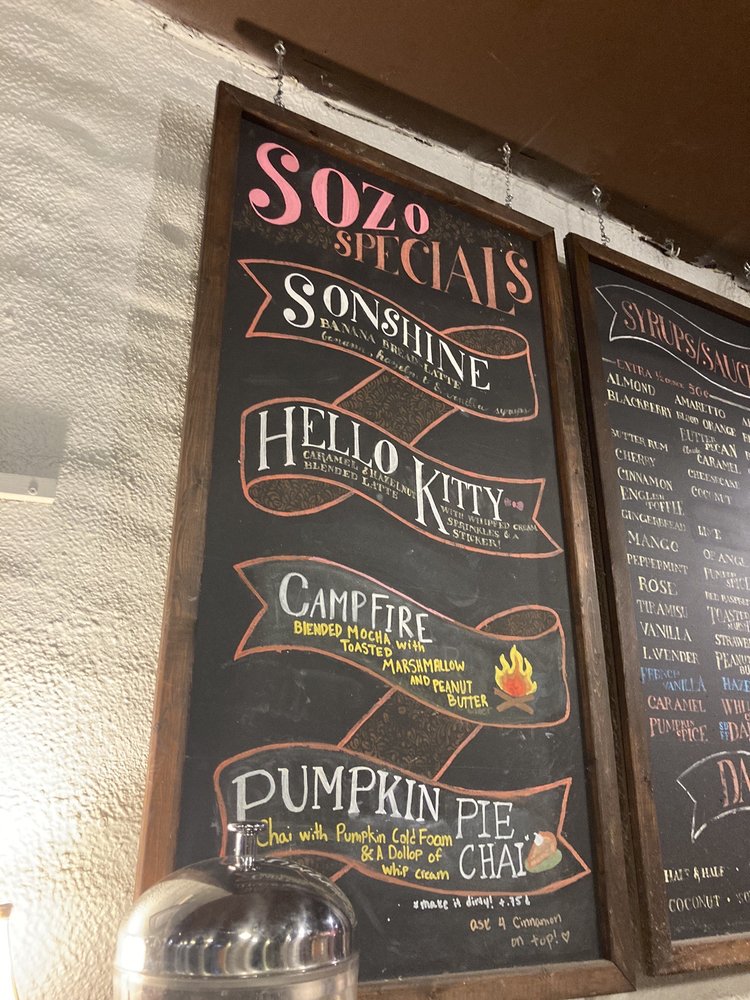 SOZO
SPECIALS
SONSHINE
BANANA BREAD LATTE
banana, hazelnut & vanilla syrups
HELLO KITTY
CARAMEL & HAZELNUT
BLENDED LATTE
WITH WHIPPED CREAM
SPRINKLES & A
STICKER!
CAMPFIRE
BLENDED MOCHA with
TOASTED
MARSHMALLOW
AND PEANUT
BUTTER
PUMPKIN PIE
CHAI
Chai with Pumpkin Cold Foam
& A Dollop of
Whip cream
*make it dirty! +.75¢
ask 4 Cinnamon
on top! ♡
SYRUPS/SAUC
EXTRA 50¢
ALMOND AMARETTO
BLACKBERRY BLOOD ORANGE
BUTTER RUM BUTTER PECAN
CHERRY CARAMEL
CINNAMON CHEESECAKE
ENGLISH TOFFEE COCONUT
GINGERBREAD LIME
MANGO ORANGE
PEPPERMINT PUMPKIN SPICE
ROSE RED RASPBE
TIRAMISU TOASTED
VANILLA STRAWB
LAVENDER PEANUT BU
FRENCH VANILLA HAZE
CARAMEL WHI
PUMPKIN SPICE DA
DA
HALF & HALF
COCONUT